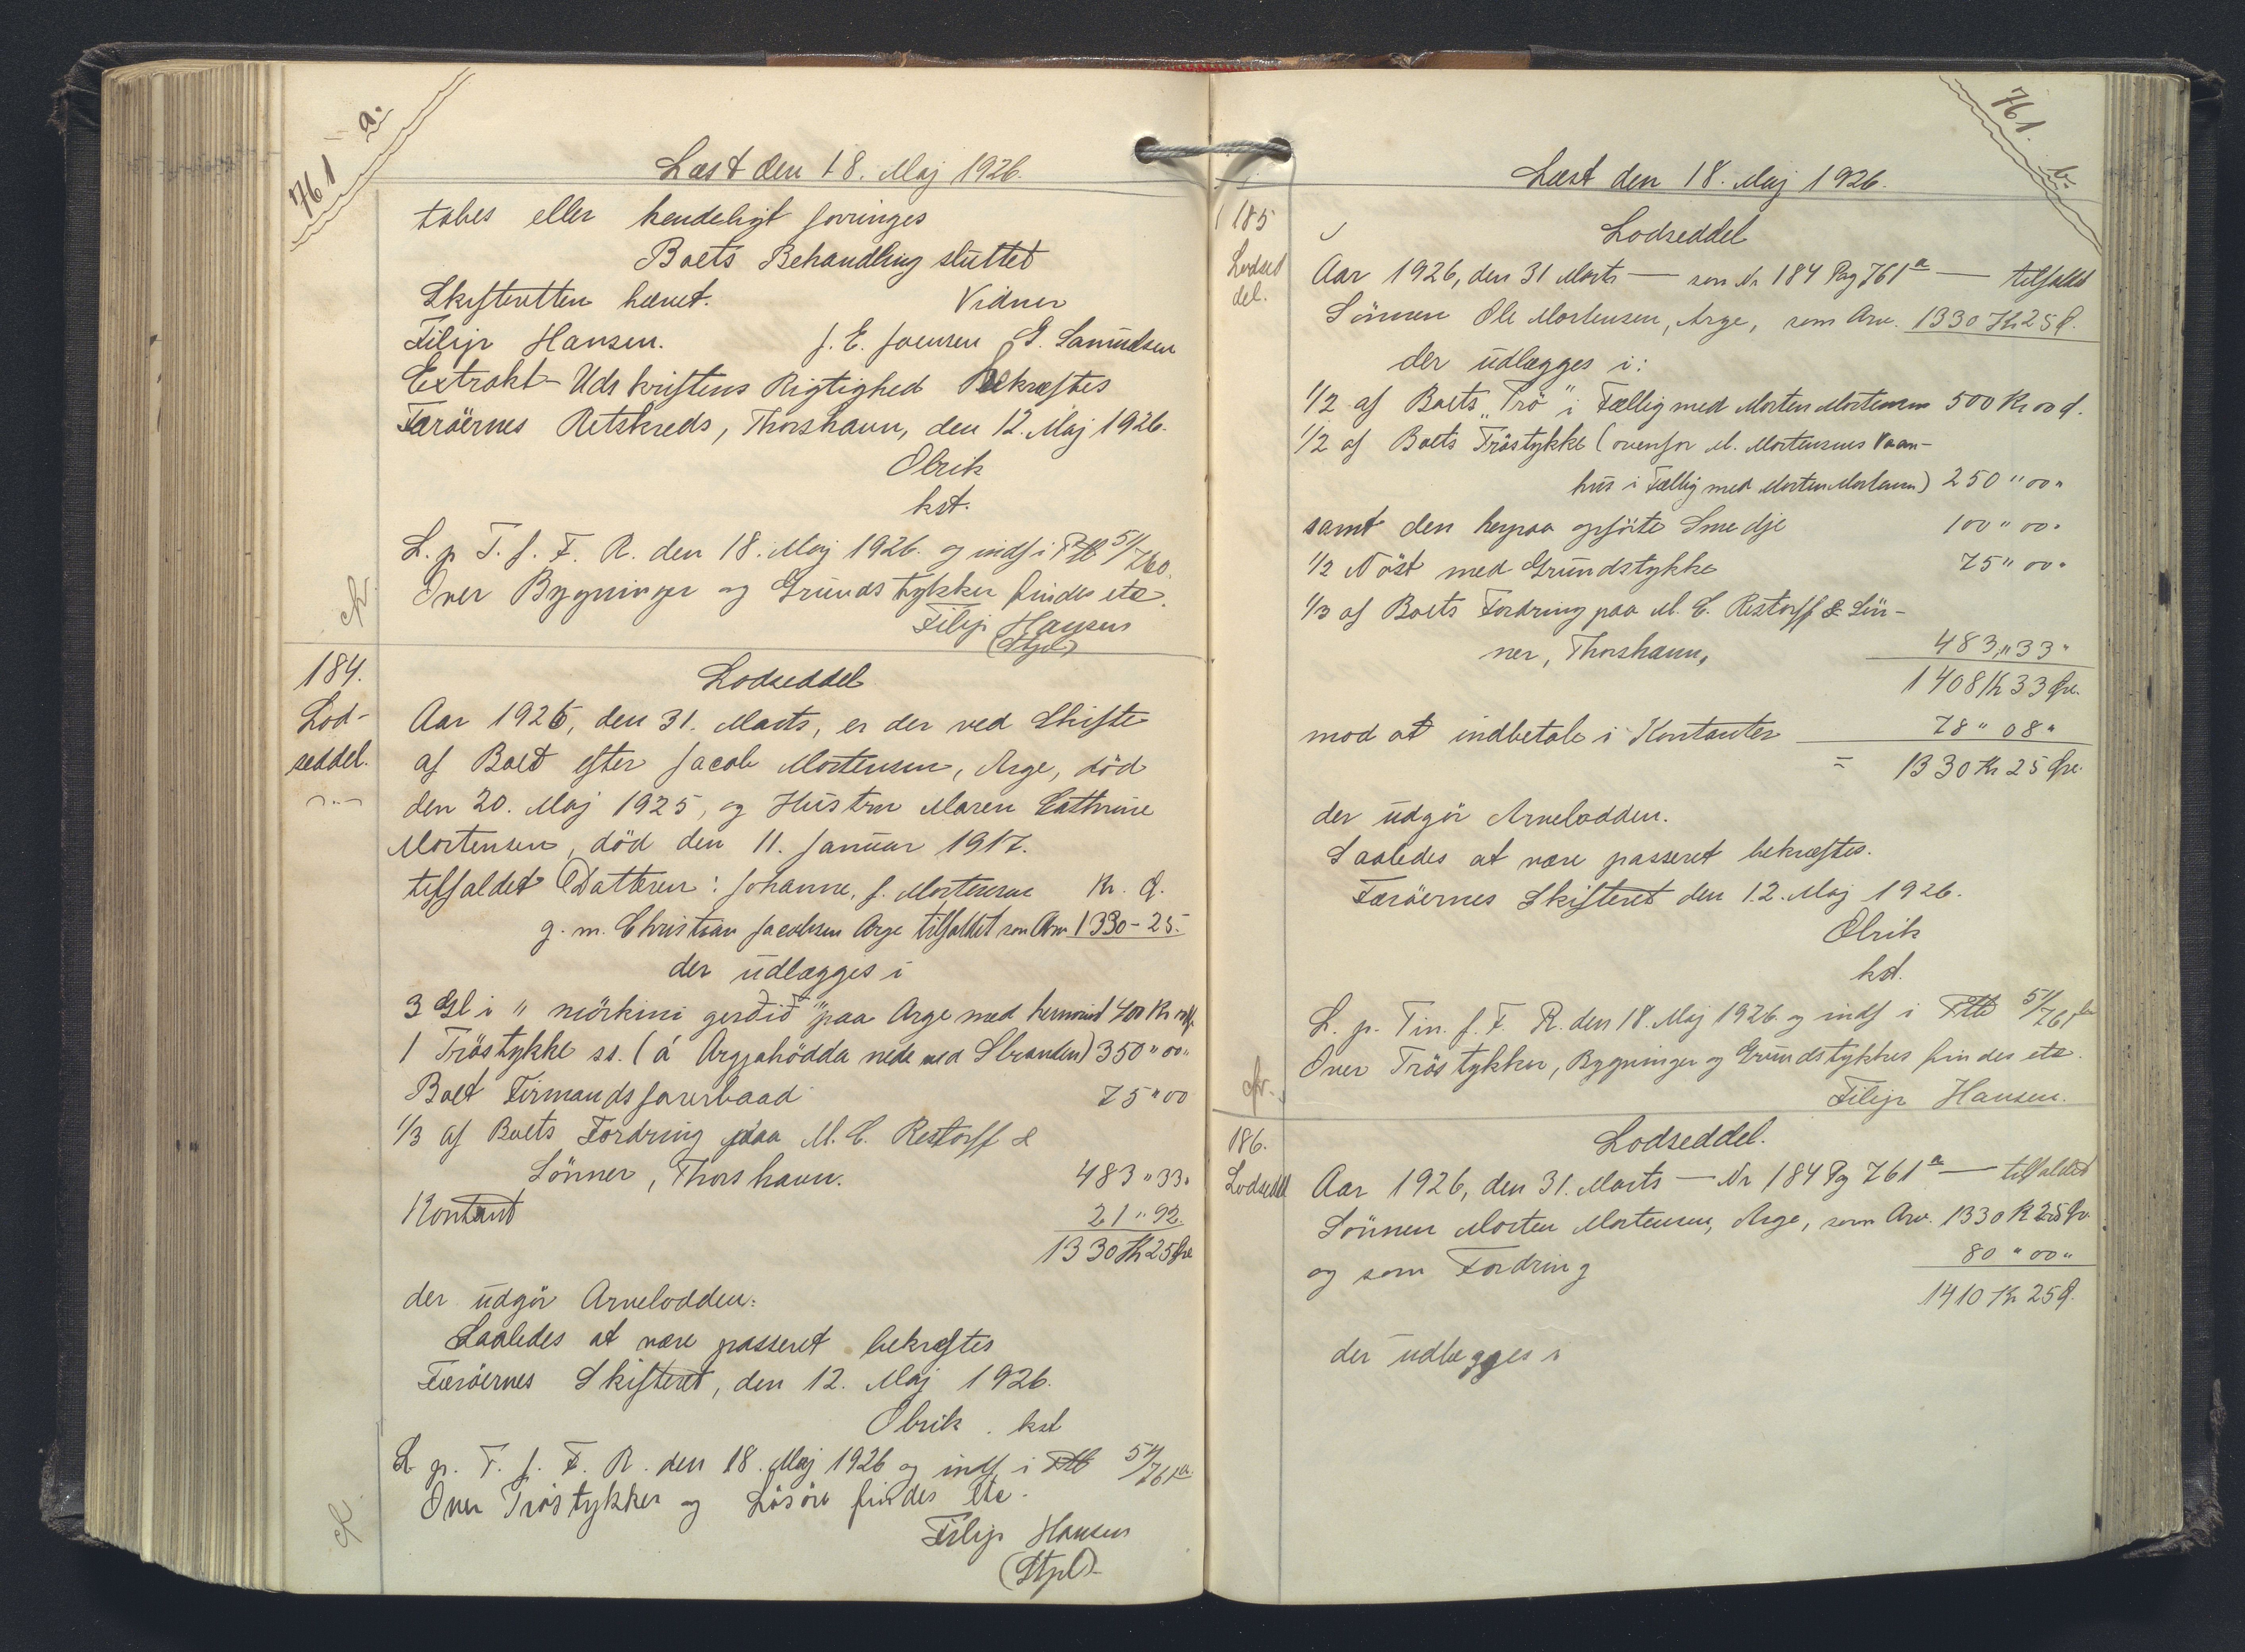 761 a.
Læst den 18. Maj 1926.
tabes eller kendeligt forringes
Boets Behandling sluttet
Skifteretten hævet. Vidner
Filip Hansen. J. E. Joensen G. Samuelsen
Extrakt-Udskriftens Rigtighed bekræftes
Færöernes Retskreds, Thorshavn, den 12. Maj 1926.
Olrik
kst.
L. p. T. f. F. R. den 18. Maj 1926. og indf i Ptb 5/760.
Over Bygninger og Grundstykker findes etc.
Filip Hansen
(Stpl)
184.
Lod-
seddel.
Lodseddel
Aar 1926, den 31. Marts, er der ved Skifte
af Boet efter Jacob Mortensen, Arge, död
den 20. Maj 1925, og Hustru Maren Cathrine
Mortensen, död den 11. Januar 1917.
tilfaldet Datteren: Johanne, f. Mortensen Kr. Ø.
g. m. Christian Jacobsen Arge tilfaldet som Arv 1330-25.
der udlægges i
3 Gl i "mörkini gerðið" paa Arge med 400 Kr
1 Tröstykke ss. (á Argjahödda nede ved Stranden) 350 " 00 "
Boet Firmandsfarerbaad 75 " 00
1/3 af Boets Fordring paa M. C. Restorff &
Sönner, Thorshavn. 483 " 33 "
Kontant 21 " 92.
1330 Kr 25 Øre
der udgör Arvelodden.
Saaledes at være passeret bekræftes
Færöernes Skifteret, den 12. Maj 1926.
Olrik. kst
L. p. T. f. F. R. den 18. Maj 1926 og indf. i Ptb 5/761 a.
Over Tröstykker og Lösöre findes etc.
Filip Hansen
(Stpl)
761. b.
Læst den 18. Maj 1926.
185
Lodsed
del.
Lodseddel
Aar 1926, den 31 Marts — som Nr 184 Pag 761 a — tilfaldet
Sönnen Ole Mortensen, Arge, som Arv. 1330 Kr 25 Ø.
der udlægges i:
1/2 af Boets "Trö" i Fællig med Morten Mortensen 500 Kr 00 Ø.
1/2 af Boets Tröstykke (ovenfor M. Mortensens Vaan-
hus i Fællig med Morten Mortensen) 250 " 00 "
samt den herpaa opförte Smedje 100 " 00 "
1/2 Nöst med Grundstykke 75 " 00 "
1/3 af Boets Fordring paa M. C. Restorff & Sön-
ner, Thorshavn, 483 " 33 "
1408 Kr 33 Øre.
mod at indbetale i Kontanter 78 " 08 "
= 1330 Kr 25 Øre.
der udgör Arvelodden.
Saaledes at være passeret bekræftes.
Færöernes Skifteret den 12. Maj 1926.
Olrik
kst.
L. p. Tin. f. F. R. den 18. Maj 1926. og indf i Ptb 5/761 b
Over Tröstykker, Bygninger og Grundstykker findes etc.
Filip Hansen.
186.
Lodseddel
Lodseddel.
Aar 1926, den 31. Marts — Nr 184 Pg 761 a — tilfaldet
Sönnen Morten Mortensen, Arge, som Arv. 1330 K 25 Ør.
og som Fordring 80 " 00 "
1410 Kr 25 Ø.
der udlægges i